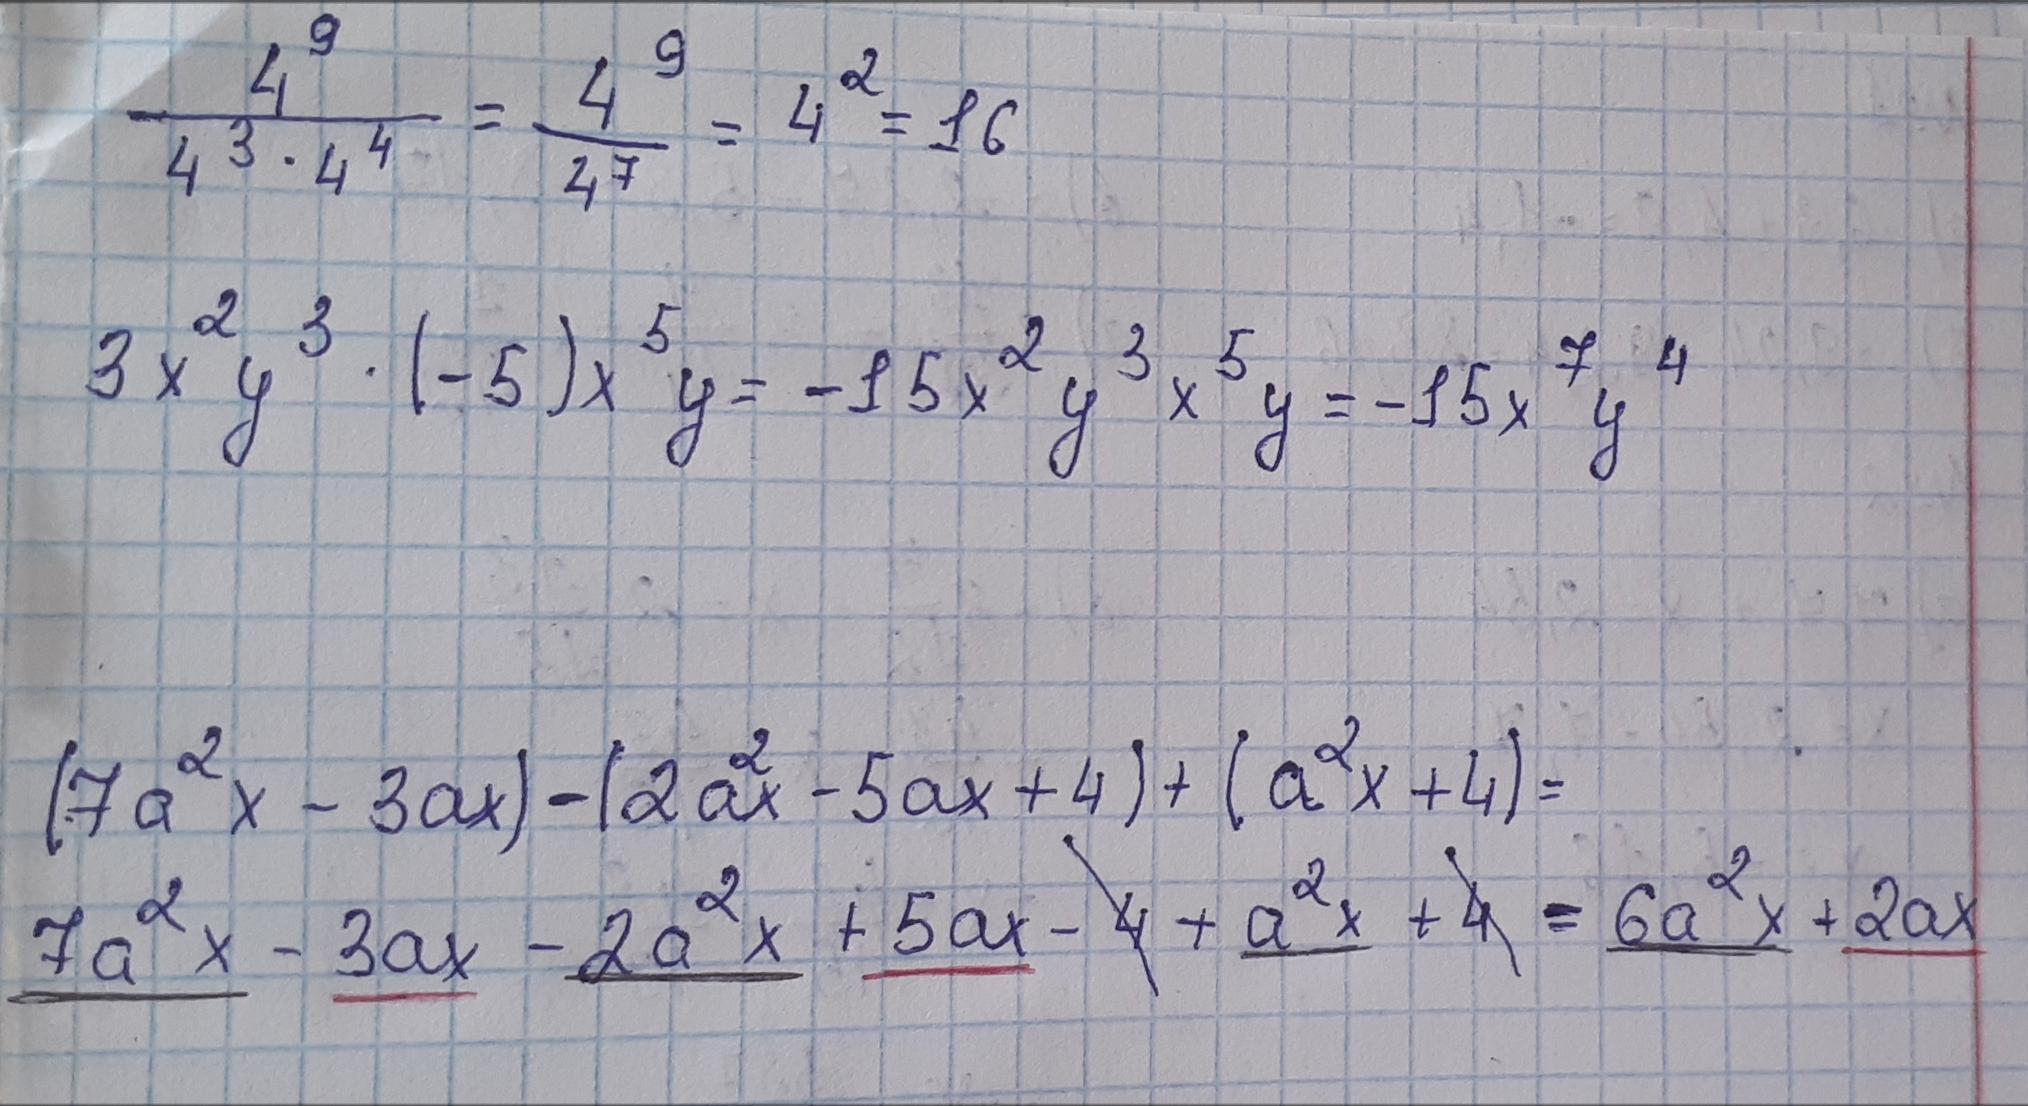 4⁹/(4³·4⁴) = 4⁹/4⁷ = 4² = 16
3x²y³·(-5)x⁵y = -15x²y³x⁵y = -15x⁷y⁴
(7a²x - 3ax) - (2a²x - 5ax + 4) + (a²x + 4) =
7a²x - 3ax - 2a²x + 5ax - 4 + a²x + 4 = 6a²x + 2ax